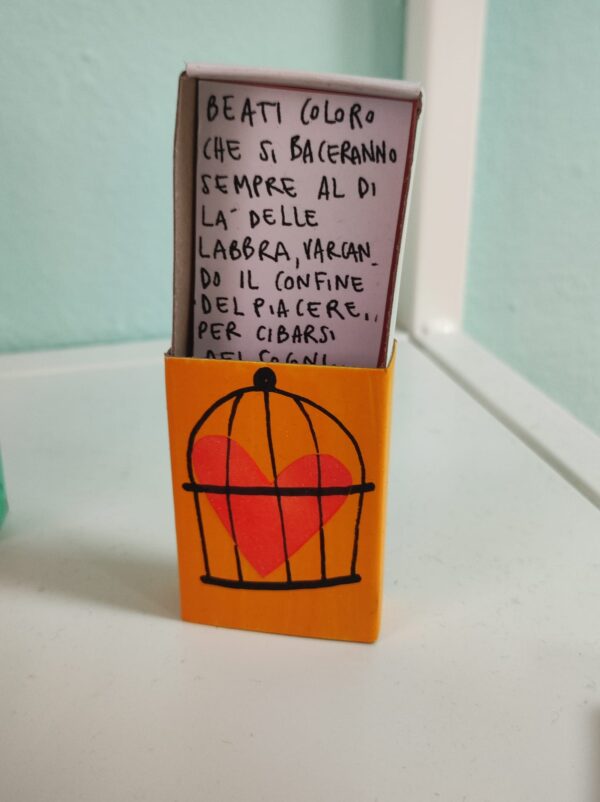 BEATI COLORO
CHE SI BACERANNO
SEMPRE AL DI
LA' DELLE
LABBRA, VARCAN_
DO IL CONFINE
DEL PIACERE..
PER CIBARSI
DEI SOGNI...